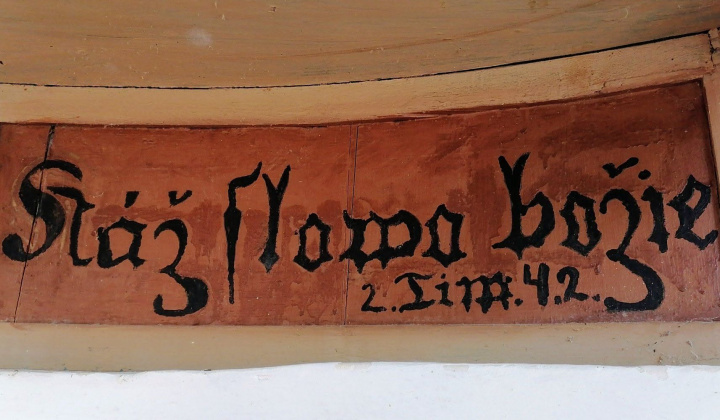 Káž ſlowo božie
2. Tim. 4. 2.